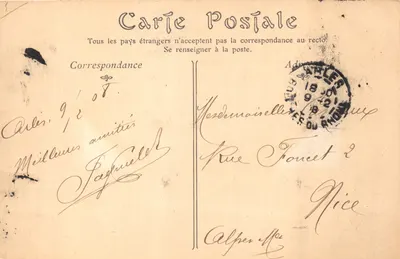 Carte Postale
Tous les pays étrangers n'acceptent pas la correspondance au recto.
Se renseigner à la poste.
Correspondance
ARLES
18 30
9 -12
BES DU RHONE
Arles, 9/2 08.
Meilleures amitiés
Mesdemoiselles
Rue Foncet 2
Nice
Alpes Mmes